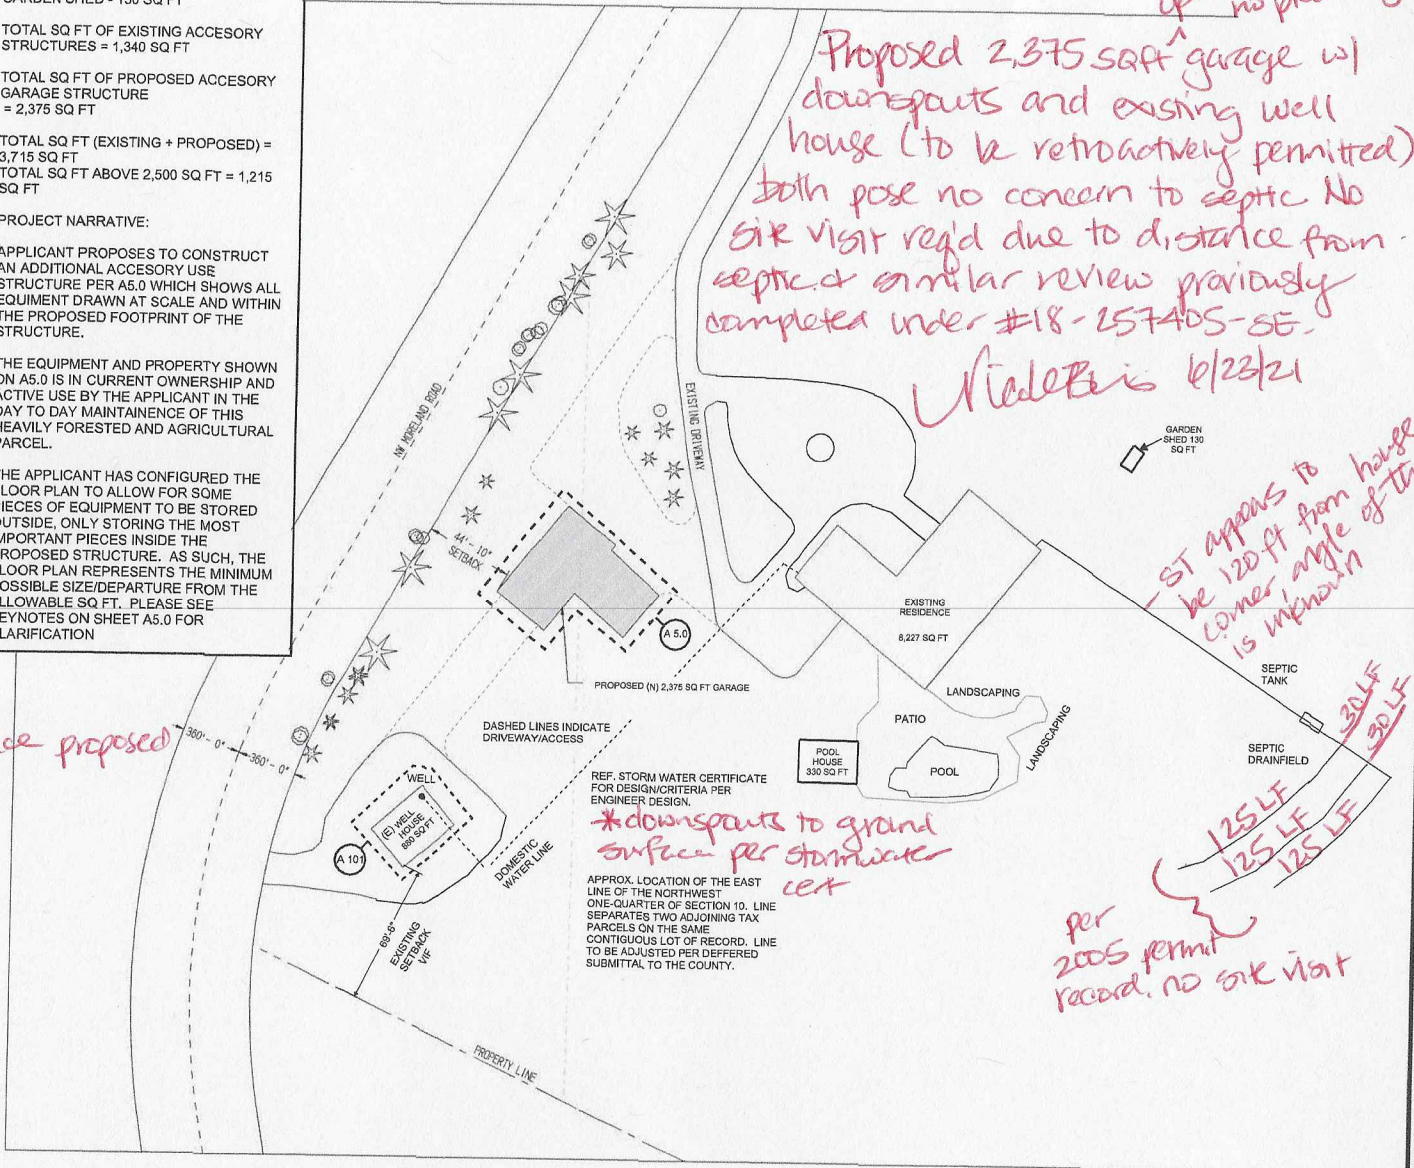 GARDEN SHED - 130 SQ FT
TOTAL SQ FT OF EXISTING ACCESORY
STRUCTURES = 1,340 SQ FT
TOTAL SQ FT OF PROPOSED ACCESORY
GARAGE STRUCTURE
= 2,375 SQ FT
TOTAL SQ FT (EXISTING + PROPOSED) =
3,715 SQ FT
TOTAL SQ FT ABOVE 2,500 SQ FT = 1,215
SQ FT
PROJECT NARRATIVE:
APPLICANT PROPOSES TO CONSTRUCT
AN ADDITIONAL ACCESORY USE
STRUCTURE PER A5.0 WHICH SHOWS ALL
EQUIMENT DRAWN AT SCALE AND WITHIN
THE PROPOSED FOOTPRINT OF THE
STRUCTURE.
THE EQUIPMENT AND PROPERTY SHOWN
ON A5.0 IS IN CURRENT OWNERSHIP AND
ACTIVE USE BY THE APPLICANT IN THE
DAY TO DAY MAINTAINENCE OF THIS
HEAVILY FORESTED AND AGRICULTURAL
PARCEL.
THE APPLICANT HAS CONFIGURED THE
FLOOR PLAN TO ALLOW FOR SOME
PIECES OF EQUIPMENT TO BE STORED
OUTSIDE, ONLY STORING THE MOST
IMPORTANT PIECES INSIDE THE
PROPOSED STRUCTURE. AS SUCH, THE
FLOOR PLAN REPRESENTS THE MINIMUM
POSSIBLE SIZE/DEPARTURE FROM THE
ALLOWABLE SQ FT. PLEASE SEE
KEYNOTES ON SHEET A5.0 FOR
CLARIFICATION
Proposed 2,375 sqft garage w/
downspouts and existing well
house (to be retroactively permitted)
both pose no concern to septic. No
site visit req'd due to distance from
septic & similar review previously
completed under #18-257405-SE.
6/23/21
NW MORELAND ROAD
EXISTING DRIVEWAY
GARDEN
SHED 130
SQ FT
- ST appears to
be 120ft from house
corner, angle of th
is unknown
44' - 10"
SETBACK
EXISTING
RESIDENCE
6,227 SQ FT
A 5.0
PROPOSED (N) 2,375 SQ FT GARAGE
SEPTIC
TANK
30 LF
30 LF
LANDSCAPING
PATIO
LANDSCAPING
POOL
POOL
HOUSE
330 SQ FT
SEPTIC
DRAINFIELD
125 LF
125 LF
125 LF
DASHED LINES INDICATE
DRIVEWAY/ACCESS
proposed
360' - 0"
360' - 0"
WELL
(E) WELL
HOUSE
880 SQ FT
A 101
DOMESTIC
WATER LINE
REF. STORM WATER CERTIFICATE
FOR DESIGN/CRITERIA PER
ENGINEER DESIGN.
*downspouts to ground
surface per stormwater
cert
APPROX. LOCATION OF THE EAST
LINE OF THE NORTHWEST
ONE-QUARTER OF SECTION 10. LINE
SEPARATES TWO ADJOINING TAX
PARCELS ON THE SAME
CONTIGUOUS LOT OF RECORD. LINE
TO BE ADJUSTED PER DEFFERED
SUBMITTAL TO THE COUNTY.
per
2005 permit
record. no site visit
69'-6"
EXISTING
SETBACK
VIF
PROPERTY LINE